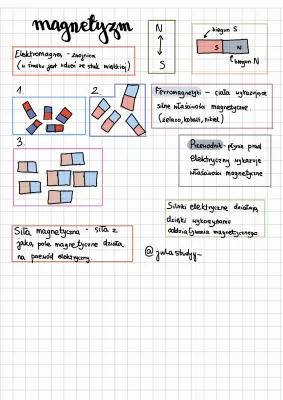 magnetyzm
N
S
biegun S
S
N
biegun N
Elektromagnes - zwojnica
(w środku jest rdzeń ze stali miękkiej)
1.
2.
Ferromagnetyki - ciała wykazujące
silne właściwości magnetyczne.
(żelazo, kobalt, nikiel)
3.
Przewodnik - płynie prąd
elektryczny wykazuje
właściwości magnetyczne
Silniki elektryczne działają
dzięki wykorzystaniu
oddziaływania magnetycznego
Siła magnetyczna - siła z
jaką pole magnetyczne działa
na przewód elektryczny.